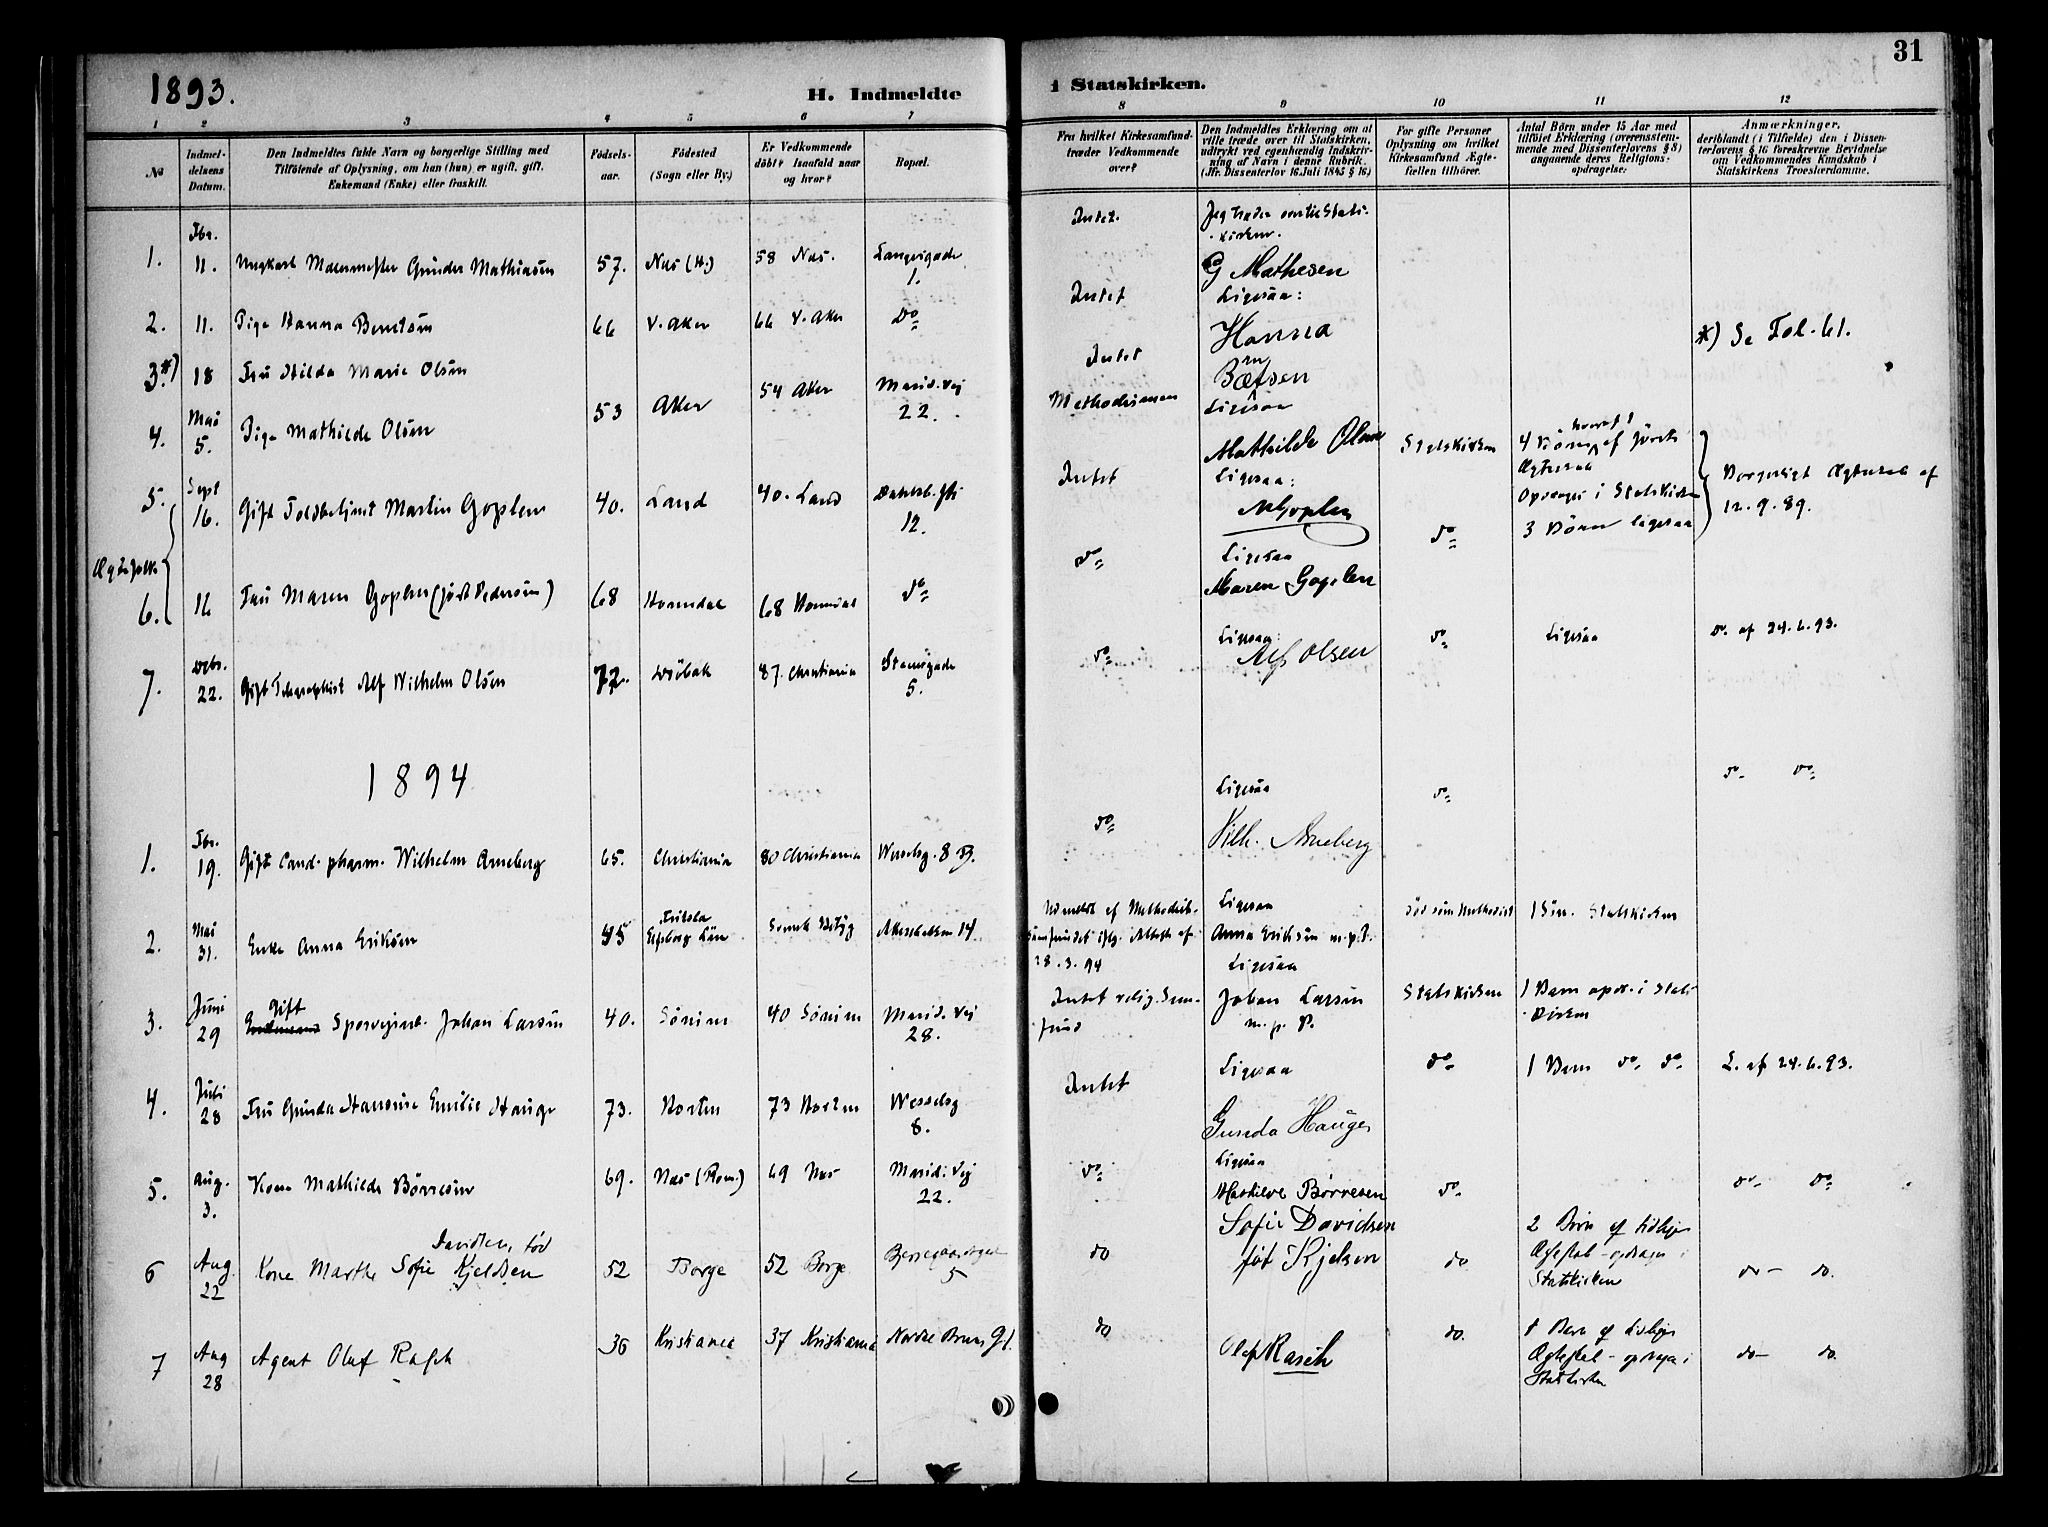 1893.
H. Indmeldte
i Statskirken.
31
1 2 3 4 5 6 7 8 9 10 11 12
No
Indmel-
delsens
Datum.
Den Indmeldtes fulde Navn og borgerlige Stilling med
Tilføiende af Oplysning, om han (hun) er ugift, gift,
Enkemand (Enke) eller fraskilt.
Fødsels-
aar.
Fødested
(Sogn eller By.)
Er Vedkommende
døbt? Isaafald naar
og hvor?
Bopæl.
Fra hvilket Kirkesamfund
træder Vedkommende
over?
Den Indmeldtes Erklæring om at
ville træde over til Statskirken,
udtrykt ved egenhændig Indskriv-
ning af Navn i denne Rubrik.
(Jfr. Dissenterlov 16 Juli 1845 § 16.)
For gifte Personer
Oplysning om hvilket
Kirkesamfund Ægte-
fællen tilhører.
Antal Børn under 15 Aar med
tilføiet Erklæring (overensstem-
mende med Dissenterlovens § 8)
angaaende deres Religions-
opdragelse:
Anmærkninger,
deriblandt (i Tilfælde) den i Dissen-
terlovens § 16 foreskrevne Bevidnelse
om Vedkommendes Kundskab i
Statskirkens Troeslærdomme.
Fbr.
1. 11. Ungkarl Malermester Gunder Mathiasen 57. Næs (H.) 58 Næs. Langesgade
1.
Intet.
Jeg træder over til Stats-
kirken.
G Mathesen
2. 11. Pige Hanna Berntsen 66 V. Aker 66 V. Aker Do
Intet Ligesaa:
Hanna
Bærntsen
3*) 18 Fru Hilda Marie Olsen
Intet
*) Se Fol. 61.
4. Mai
5. Pige Mathilde Olsen 53 Aker 54 Aker Marid. Vej
22.
Methodisman Ligesaa
Mathilde Olsen
5. Sept
16. Gift Toldbetjent Martin Goplen 40. Land 40. Land
12.
Intet Ligesaa:
MGoplen
Statskirken
4 Børn af første
Ægteskab
Opdrages i Statskirken
3 Børn ligesaa
Borgerligt Ægteskab af
12. 9. 89.
Ægtefolk
6. 16 Fru Maren Goplen (født Pedersen) 68 Horndal 68 Horndal do
do Ligesaa
Maren Goplen
do
7. Dcbr.
22. Gift Telegraphist Alf Wilhelm Olsen 72. Drøbak 87. Christiania Stensgade
5.
do Ligesaa:
Alf Olsen
do Ligesaa D. af 24.6.93.
1894
1. Fbr.
19. Gift Cand. pharm. Wilhelm Arneberg 65. Christiania 80 Christiania Wesselsg. 8 B.
do Ligesaa
Vilh. Arneberg
do do do
2. Mai
31. Enke Anna Eriksen 45
Elfsborg Län Akersbakken 14.
Udmeldt af Methodist-
samfundet iflg. Attest af
28. 3. 94
Ligesaa
Anna Eriksen m.p.P.
død som Methodist 1 Søn. Statskirken
3. Juni
29 Gift
Enkemand Sporveisarb. Johan Larsen 40. Sørum 40 Sørum Marid. Vej
28.
Intet relig. Sam-
fund
Ligesaa
Johan Larsen
m. p. P.
Statskirken 1 Barn opdr. i Stats-
kirken
4. Juli
28 Fru Gunda Hansine Emilie Hauge 73. Horten 73 Horten Wesselsg
8.
Intet Ligesaa
Gunda Hauge
do 1 Barn do do L. af 24.6.93.
5. Aug.
3. Kone Mathilde Børresen 69. Næs (Rom.) 69 Næs Marid. Vej
22.
do Ligesaa
Mathilde Børresen
do do do
6 Aug
22 Kone Marthe Sofie Davidsen, fød
Kjeldsen 52 Borge 52 Borge
5
do Sofie Davidsen
føt Kjelsen
do
2 Børn af tidligere
Ægteskab - opdrages i
Statskirken
do - do.
7 Aug
28 Agent Oluf Rasch 36 Kristiania 37 Kristiania Nordre Bruns G 1.
do Olaf Rasch do.
1 Barn af tidligere
Ægteskab - opdrages i
Statskirken
do - do.